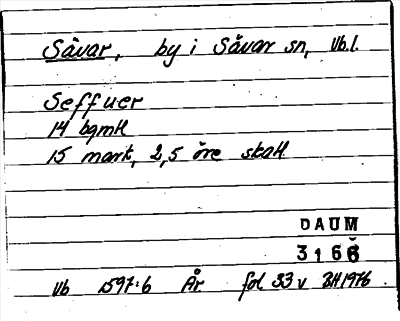 Sävar, by i Sävar sn, Vb.l.
Seffuer
14 bgmtl
15 mark, 2,5 öre skatt
DAUM
3166
Vb 1597:6 År fol 33 v BH 1976.